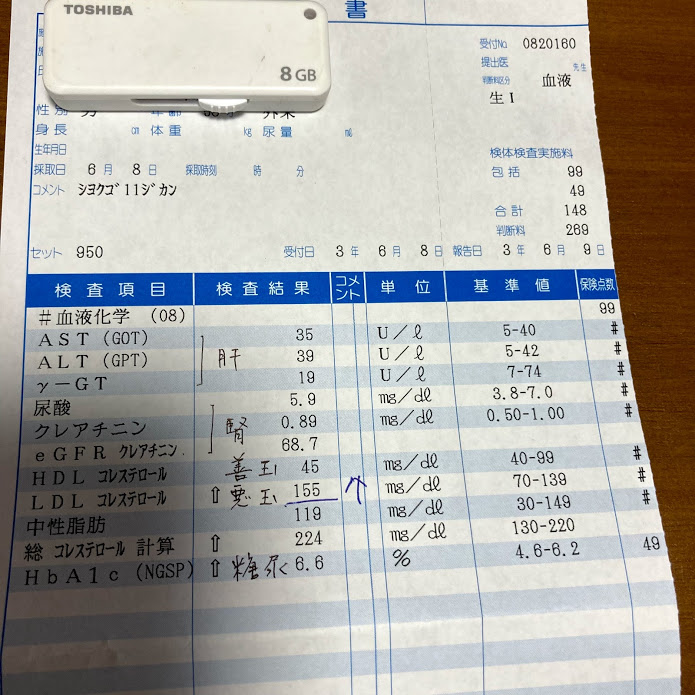 TOSHIBA
8GB
書
受付No 0820160
提出医
先生
判断料区分 血液
生I
性別 男 年齢
外来
身長 cm 体重 kg 尿量 ml
生年月日
採取日 6月 8日 採取時刻 時 分
コメント ショクゴ 11ジカン
検体検査実施料
包括 99
49
合計 148
判断料 269
セット 950 受付日 3年 6月 8日 報告日 3年 6月 9日
検査項目 検査結果 コメント 単位 基準値 保険点数
#血液化学 (08) 99
AST (GOT) 35 U/l 5-40 #
ALT (GPT) 肝 39 U/l 5-42 #
γ-GT 19 U/l 7-74 #
尿酸 5.9 mg/dl 3.8-7.0 #
クレアチニン 腎 0.89 mg/dl 0.50-1.00 #
eGFR クレアチニン. 68.7
HDL コレステロール 善玉 45 mg/dl 40-99 #
LDL コレステロール ⇧ 悪玉 155 ↑ mg/dl 70-139 #
中性脂肪 119 mg/dl 30-149 #
総 コレステロール 計算 ⇧ 224 mg/dl 130-220
HbA1c (NGSP) ⇧ 糖尿 6.6 % 4.6-6.2 49